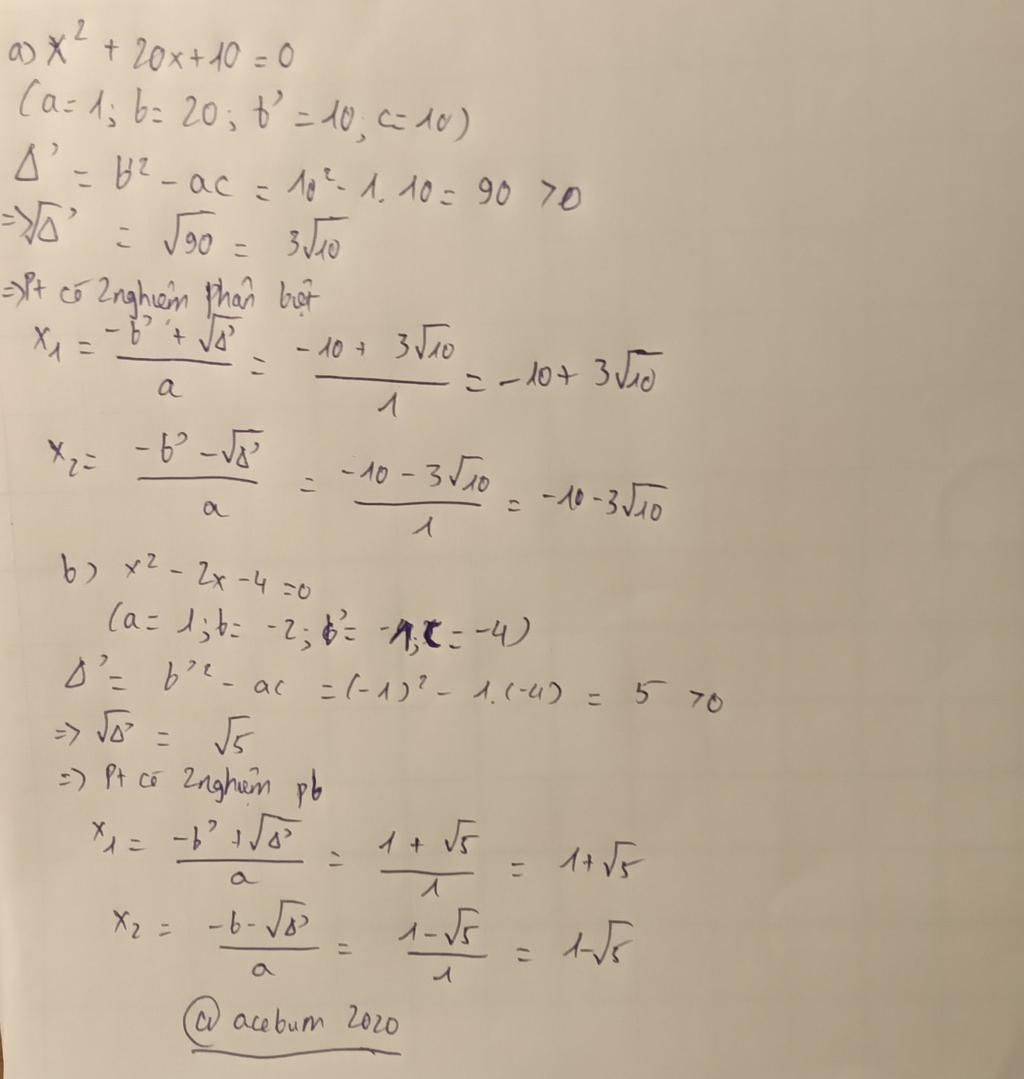 a) x² + 20x + 10 = 0
(a = 1; b = 20; b' = 10; c = 10)
Δ' = b'² - ac = 10² - 1.10 = 90 > 0
=> √Δ' = √90 = 3√10
=> Pt có 2 nghiệm phân biệt
x₁ = (-b' + √Δ')/a = (-10 + 3√10)/1 = -10 + 3√10
x₂ = (-b' - √Δ')/a = (-10 - 3√10)/1 = -10 - 3√10
b) x² - 2x - 4 = 0
(a = 1; b = -2; b' = -1; c = -4)
Δ' = b'² - ac = (-1)² - 1.(-4) = 5 > 0
=> √Δ' = √5
=> Pt có 2 nghiệm pb
x₁ = (-b' + √Δ')/a = (1 + √5)/1 = 1 + √5
x₂ = (-b - √Δ')/a = (1 - √5)/1 = 1 - √5
@ acebum 2020